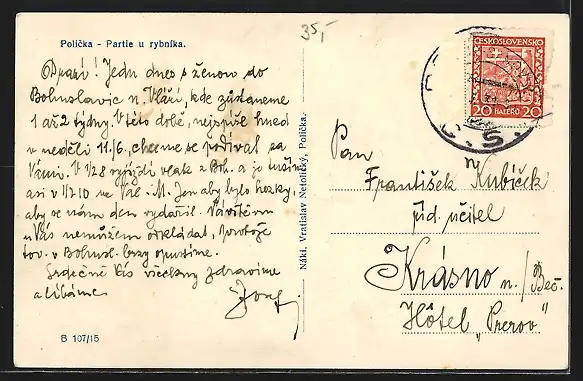 35,-
Polička - Partie u rybníka.
Drazí! Jedu dnes s ženou do
Bohuslavic n. Vláří, kde zůstaneme
1 až 2 týdny. V této době, nejspíše hned
v neděli 11./6, chceme se podívat za
Vámi. V 1/28 vyjíždí vlak z Boh. a je
asi v 1/210 ve Val. M. Jen aby bylo hezky,
aby se nám den vydařil. Návštěvu
u Vás nemůžem odkládat, protože
tov. v Bohusl. brzy opustíme.
Srdečně Vás všechny zdravíme
a líbáme
Josef
B 107/15
Nákl. Vratislav Netolický, Polička.
ČESKOSLOVENSKO
20 HALÉŘŮ 20
Pan
František Kubíček
říd. učitel
v
Krásno n./Beč.
Hôtel „Prerov"